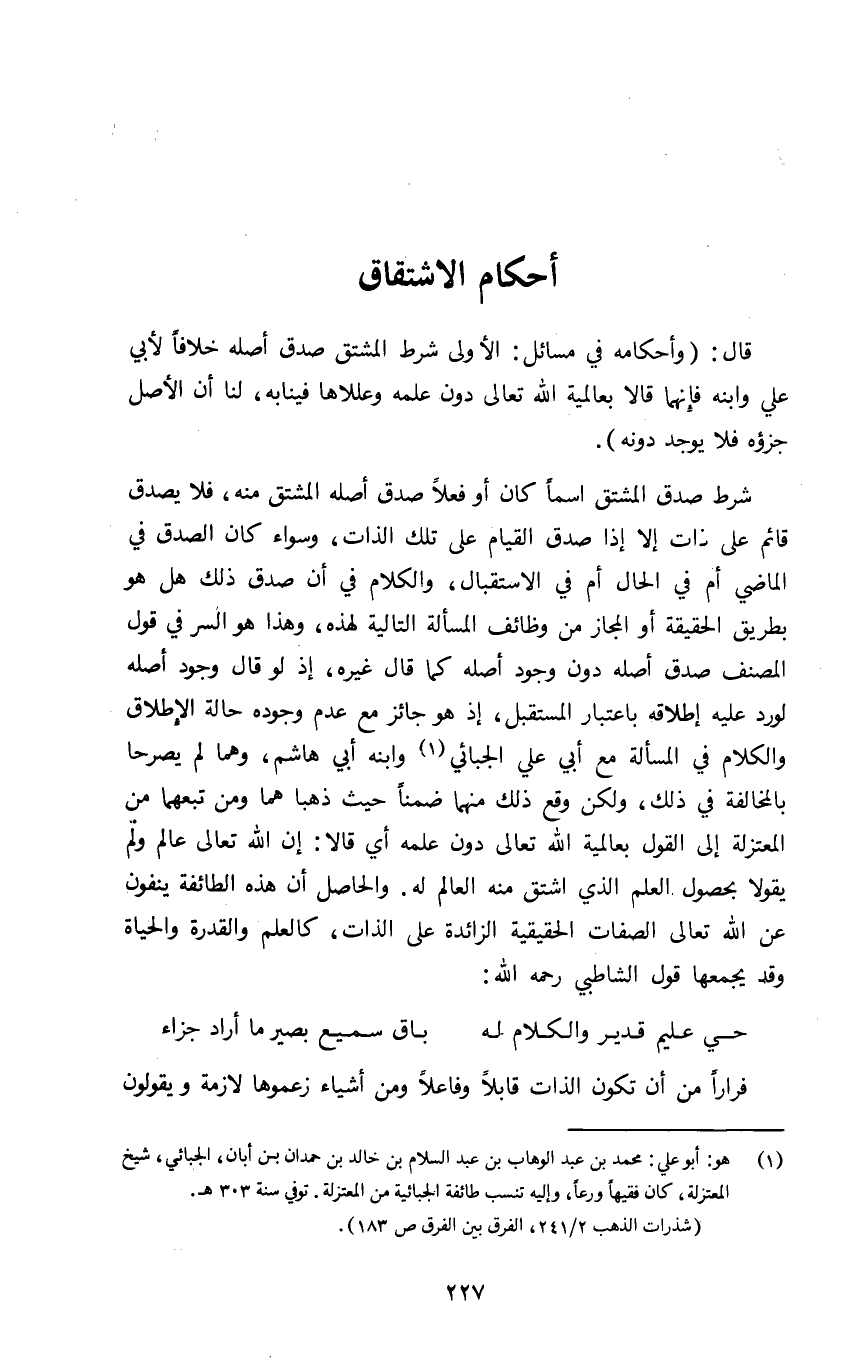 أحكام الاشتقاق
قال: (وأحكامه في مسائل: الأولى شرط المشتق صدق أصله خلافاً لأبي
علي وابنه فإنهما قالا بعالمية الله تعالى دون علمه وعللاها فينابه، لنا أن الأصل
جزؤه فلا يوجد دونه).
شرط صدق المشتق اسماً كان أو فعلاً صدق أصله المشتق منه، فلا يصدق
قائم على ذات إلا إذا صدق القيام على تلك الذات، وسواء كان الصدق في
الماضي أم في الحال أم في الاستقبال، والكلام في أن صدق ذلك هل هو
بطريق الحقيقة أو المجاز من وظائف المسألة التالية لهذه، وهذا هو السر في قول
المصنف صدق أصله دون وجود أصله كما قال غيره، إذ لو قال وجود أصله
لورد عليه إطلاقه باعتبار المستقبل، إذ هو جائز مع عدم وجوده حالة الإطلاق
والكلام في المسألة مع أبي علي الجبائي(١) وابنه أبي هاشم، وهما لم يصرحا
بالمخالفة في ذلك، ولكن وقع ذلك منهما ضمناً حيث ذهبا هما ومن تبعهما من
المعتزلة إلى القول بعالمية الله تعالى دون علمه أي قالا: إن الله تعالى عالم ولم
يقولا بحصول العلم الذي اشتق منه العالم له. والحاصل أن هذه الطائفة ينفون
عن الله تعالى الصفات الحقيقية الزائدة على الذات، كالعلم والقدرة والحياة
وقد يجمعها قول الشاطبي رحمه الله:
حـي عليم قدير والكلام له باق سميع بصير ما أراد جزاء
فراراً من أن تكون الذات قابلاً وفاعلاً ومن أشياء زعموها لازمة ويقولون
(١) هو: أبو علي: محمد بن عبد الوهاب بن عبد السلام بن خالد بن حمدان بن أبان، الجبائي، شيخ
المعتزلة، كان فقيهاً ورعاً، وإليه تنسب طائفة الجبائية من المعتزلة. توفي سنة ٣٠٣ هـ.
(شذرات الذهب ٢٤١/٢، الفرق بين الفرق ص ١٨٣).
٢٢٧